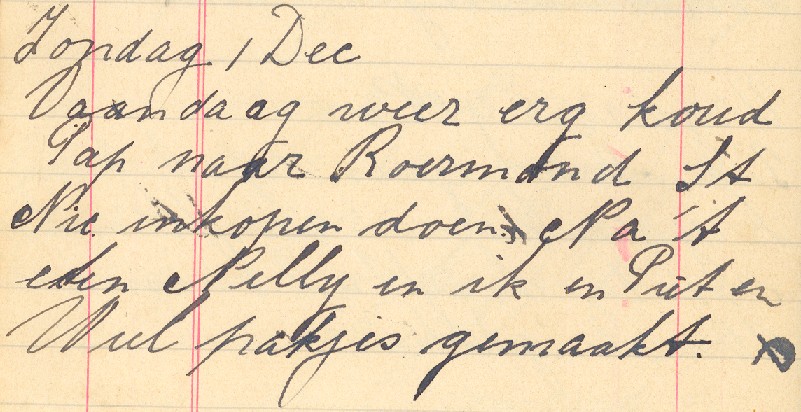 Zondag 1 Dec
Vaandaag weer erg koud
Pap naar Roermond St
Nic. inkopen doen. Na 't
eten Nelly en ik en Piet en
Wiel pakjes gemaakt.